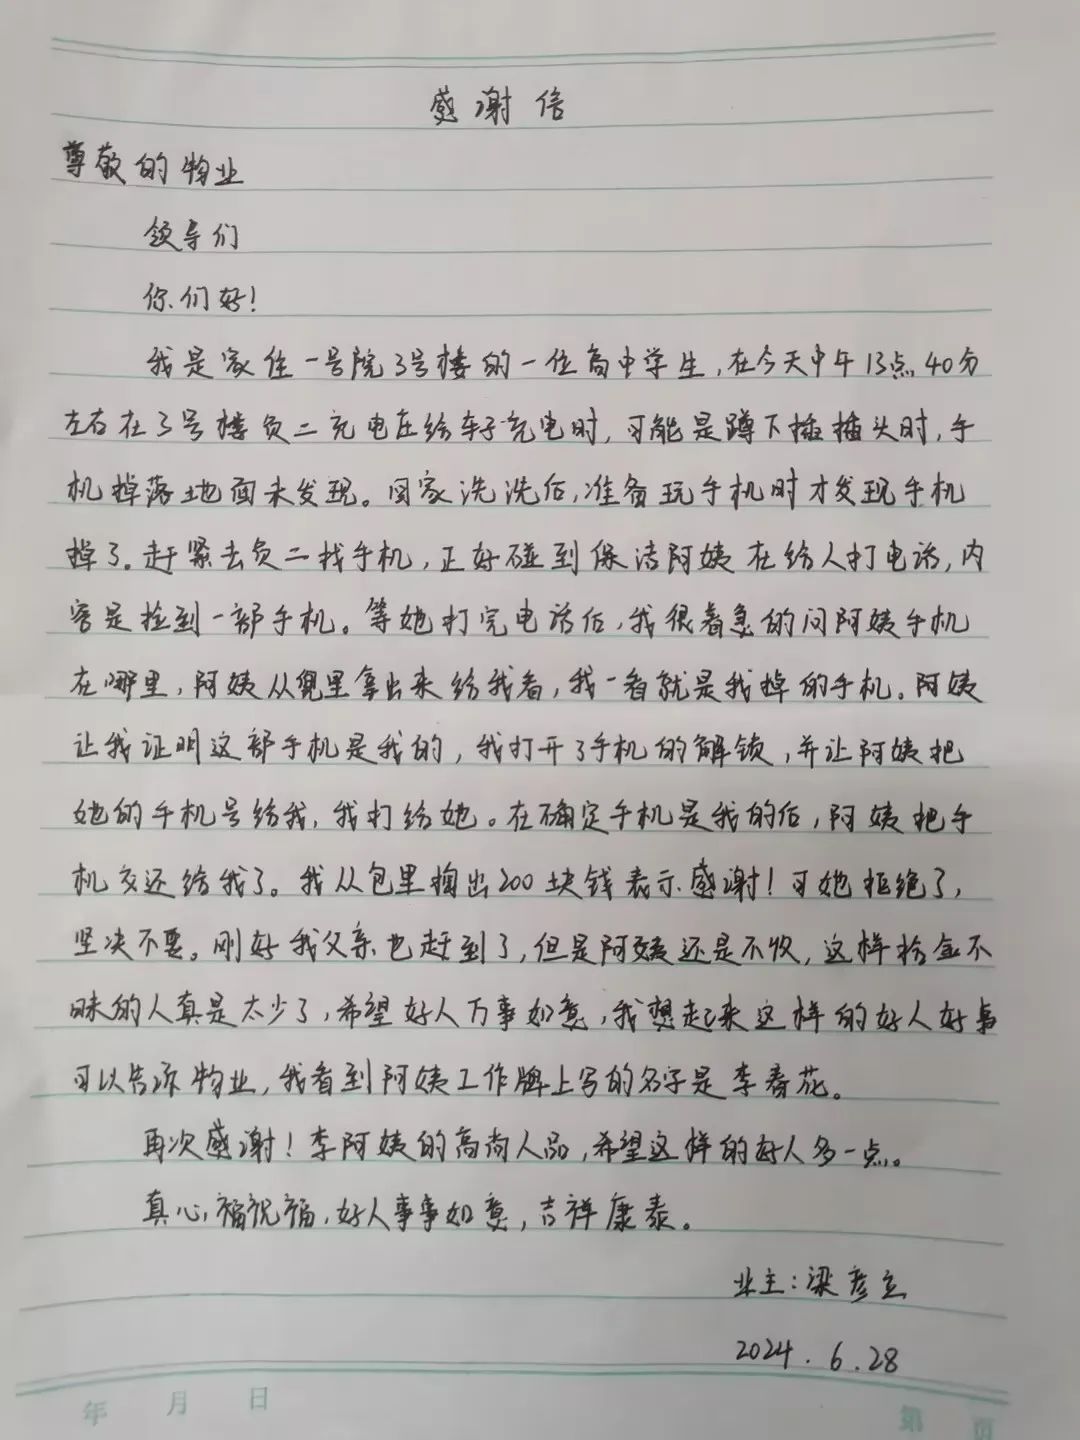 感谢信
尊敬的物业
领导们
你们好!
我是家住一号院3号楼的一位高中学生,在今天中午13点40分
左右在3号楼负二充电庄给车子充电时,可能是蹲下插插头时,手
机掉落地面未发现。回家洗洗后,准备玩手机时才发现手机
掉了。赶紧去负二找手机,正好碰到保洁阿姨在给人打电话,内
容是捡到一部手机。等她打完电话后,我很着急的问阿姨手机
在哪里,阿姨从兜里拿出来给我看,我一看就是我掉的手机。阿姨
让我证明这部手机是我的,我打开了手机的解锁,并让阿姨把
她的手机号给我,我打给她。在确定手机是我的后,阿姨把手
机交还给我了。我从包里掏出200块钱表示感谢!可她拒绝了,
坚决不要。刚好我父亲也赶到了,但是阿姨还是不收,这样拾金不
昧的人真是太少了,希望好人万事如意,我想起来这样的好人好事
可以告诉物业,我看到阿姨工作牌上写的名字是李春花。
再次感谢!李阿姨的高尚人品,希望这样的好人多一点。
真心福祝福,好人事事如意,吉祥康泰。
业主:梁彦立
2024.6.28
年 月 日 第 页